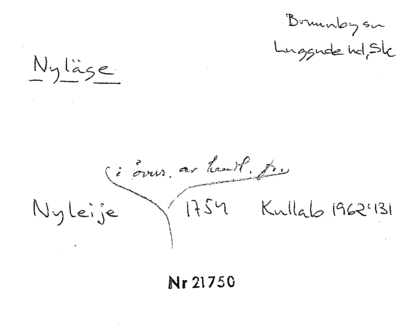 Brunnby sn
Luggude hd, Sk
Nyläge
(i övers. av handl. fr.
Nyleije 1754 Kullab 1962:131
Nr 21750